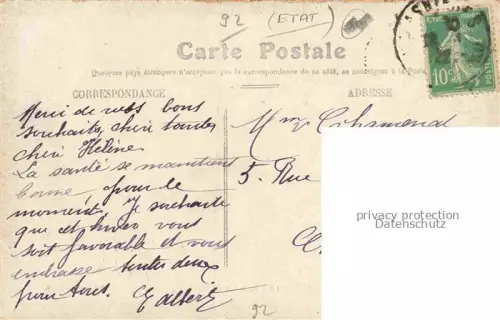 92 (ETAT)
Carte Postale
Quelques pays étrangers n'acceptent pas la correspondance de ce côté, se renseignez à la Poste
CORRESPONDANCE
ADRESSE
Merci de vos bons
souhaits, chère tantes
chère Hélène.
La santé se maintient
bonne, pour le
moment. Je souhaite
que cet hiver vous
soit favorable et vous
embrasse toutes deux
pour tous.
5. Rue
10
POSTES
privacy protection
www.AK-Ansichtskarten.de
92